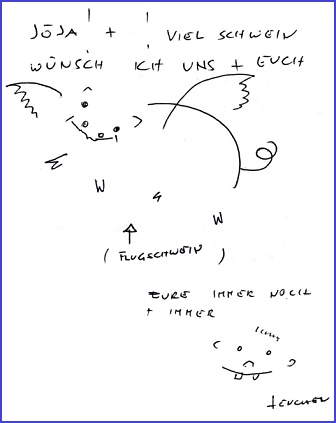 JÖJA! + ! VIEL SCHWEIN
WÜNSCH ICH UNS + EUCH
(FLUGSCHWEIN)
EURE IMMER NOCH
+ IMMER